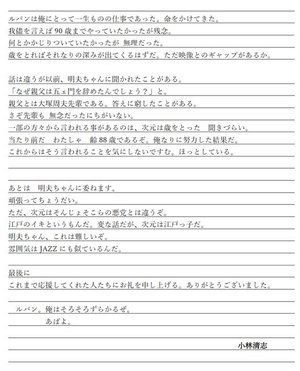 ルパンは俺にとって一生ものの仕事であった。命をかけてきた。
我儘を言えば90歳までやっていたかったが残念。
何とかかじりついていたかったが 無理だった。
歳をとればそれなりの深みが出てくるはずだ。ただ映像とのギャップがあるか。
話は違うが以前、明夫ちゃんに聞かれたことがある。
「なぜ親父は五ェ門を辞めたんでしょう？」と。
親父とは大塚周夫先輩である。答えに窮したことがある。
さぞ先輩も 無念だったにちがいない。
一部の方々から言われる事があるのは、次元は歳をとった 聞きづらい。
当たり前だ わたしゃ 齢88歳であるぞ。俺なりに努力した結果だ。
これからはそう言われることを気にしないですむ。ほっとしている。
あとは 明夫ちゃんに委ねます。
頑張ってちょうだい。
ただ、次元はそんじょそこらの悪党とは違うぞ。
江戸のイキというもんだ。変な話だが、次元は江戸っ子だ。
明夫ちゃん、これは難しいぞ。
雰囲気はJAZZにも似ているんだ。
最後に
これまで応援してくれた人たちにお礼を申し上げる。ありがとうございました。
ルパン。俺はそろそろずらかるぜ。
あばよ。
小林清志